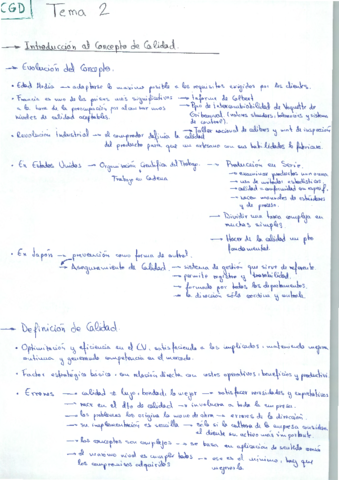 CGD
Tema 2
→ Introducción al Concepto de Calidad.
→ Evolución del Concepto.
• Edad Media → adaptarse lo máximo posible a los requisitos exigidos por los clientes.
• Francia es uno de los países más significativos → Informe de Colbert
a la hora de la preocupación por alcanzar unos → de Intercambiabilidad de Vaquette de
niveles de calidad aceptables. Gribeauval (valores standars, tolerancias y sistema
de control).
→ Taller nacional de calibres y met de inspección
• Revolución Industrial → el comprador definía la calidad
del producto para que un artesano con sus habilidades lo fabricase.
• En Estados Unidos → Organización Científica del Trabajo → Producción en Serie.
Trabajo en Cadena
→ examinar productos uno a uno
→ uso de métodos estadísticos
→ calidad = conformidad con especif.
→ hacer manuales de estándares
y de proceso.
→ Dividir una tarea compleja en
muchas simples.
→ Hacer de la calidad un pto
fundamental.
• En Japón → prevención como forma de control.
→ Aseguramiento de Calidad → sistema de gestión que sirve de referente
→ permite registro y trazabilidad.
→ formado por todos los departamentos.
→ la dirección sólo motiva y controla.
→ Definición de Calidad
• Optimización y eficiencia en el CV, satisfaciendo a los implicados, manteniendo mejora
continua y generando competencia en el mercado.
• Factor estratégico básico, con relación directa con costes operativos, beneficios y productividad
• Errores → calidad = lujo, bondad, lo mejor → satisfacer necesidades y expectativas
→ nace en el dpto de calidad → involucra a toda la empresa.
→ los problemas los origina la mano de obra → errores de la dirección
→ su implementación es sencilla → sólo si la cultura de la empresa considera
al cliente un activo más importante
→ los conceptos son complejos → se basa en aplicación de sentido común
→ el máximo nivel es cumplir todos → ese es el mínimo, hay que
los compromisos adquiridos mejorarlo